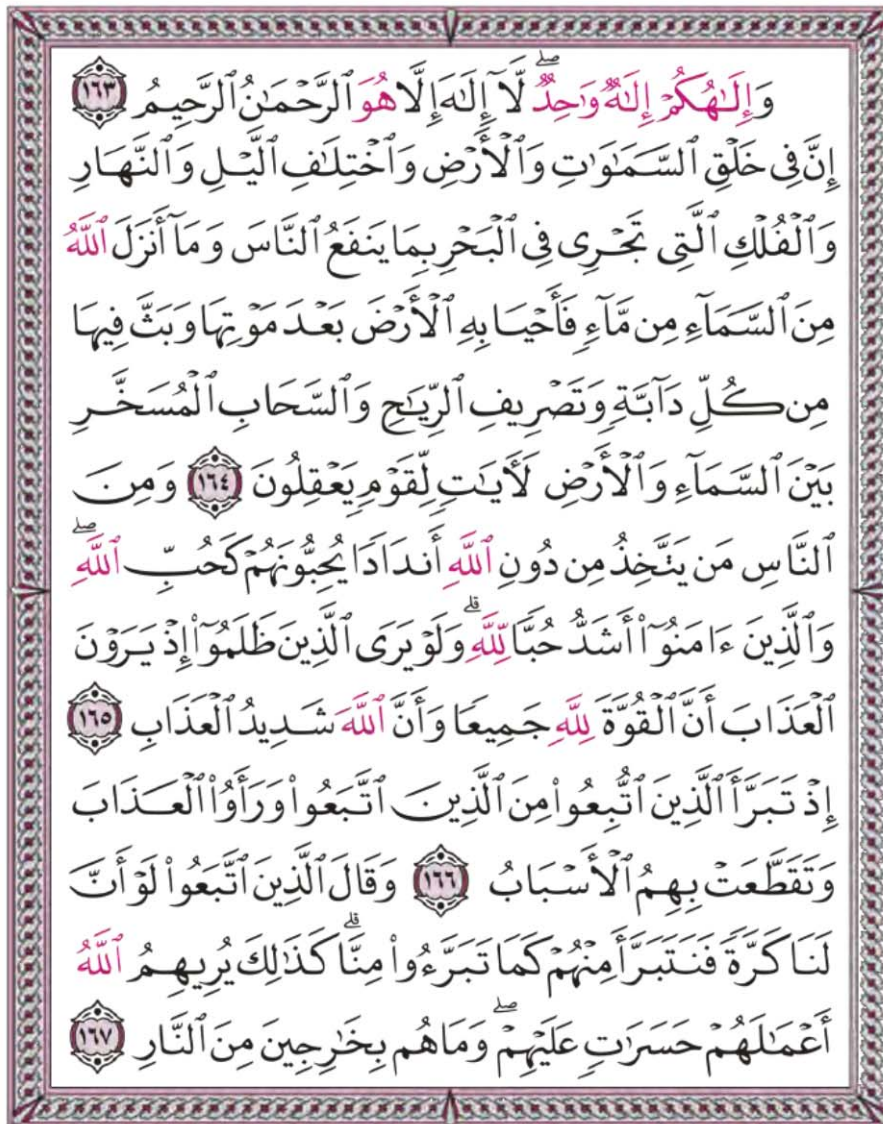 وَإِلَـٰهُكُمْ إِلَـٰهٌ وَٰحِدٌ ۖ لَّآ إِلَـٰهَ إِلَّا هُوَ ٱلرَّحْمَـٰنُ ٱلرَّحِيمُ ١٦٣
إِنَّ فِى خَلْقِ ٱلسَّمَـٰوَٰتِ وَٱلْأَرْضِ وَٱخْتِلَـٰفِ ٱلَّيْلِ وَٱلنَّهَارِ
وَٱلْفُلْكِ ٱلَّتِى تَجْرِى فِى ٱلْبَحْرِ بِمَا يَنفَعُ ٱلنَّاسَ وَمَآ أَنزَلَ ٱللَّهُ
مِنَ ٱلسَّمَآءِ مِن مَّآءٍ فَأَحْيَا بِهِ ٱلْأَرْضَ بَعْدَ مَوْتِهَا وَبَثَّ فِيهَا
مِن كُلِّ دَآبَّةٍ وَتَصْرِيفِ ٱلرِّيَـٰحِ وَٱلسَّحَابِ ٱلْمُسَخَّرِ
بَيْنَ ٱلسَّمَآءِ وَٱلْأَرْضِ لَـَٔايَـٰتٍ لِّقَوْمٍ يَعْقِلُونَ ١٦٤ وَمِنَ
ٱلنَّاسِ مَن يَتَّخِذُ مِن دُونِ ٱللَّهِ أَندَادًا يُحِبُّونَهُمْ كَحُبِّ ٱللَّهِ ۖ
وَٱلَّذِينَ ءَامَنُوٓا۟ أَشَدُّ حُبًّا لِّلَّهِ ۗ وَلَوْ يَرَى ٱلَّذِينَ ظَلَمُوٓا۟ إِذْ يَرَوْنَ
ٱلْعَذَابَ أَنَّ ٱلْقُوَّةَ لِلَّهِ جَمِيعًا وَأَنَّ ٱللَّهَ شَدِيدُ ٱلْعَذَابِ ١٦٥
إِذْ تَبَرَّأَ ٱلَّذِينَ ٱتُّبِعُوا۟ مِنَ ٱلَّذِينَ ٱتَّبَعُوا۟ وَرَأَوُا۟ ٱلْعَذَابَ
وَتَقَطَّعَتْ بِهِمُ ٱلْأَسْبَابُ ١٦٦ وَقَالَ ٱلَّذِينَ ٱتَّبَعُوا۟ لَوْ أَنَّ
لَنَا كَرَّةً فَنَتَبَرَّأَ مِنْهُمْ كَمَا تَبَرَّءُوا۟ مِنَّا ۗ كَذَٰلِكَ يُرِيهِمُ ٱللَّهُ
أَعْمَـٰلَهُمْ حَسَرَٰتٍ عَلَيْهِمْ ۖ وَمَا هُم بِخَـٰرِجِينَ مِنَ ٱلنَّارِ ١٦٧